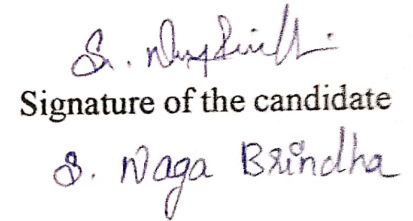 Signature of the candidate
S. Naga Brindha